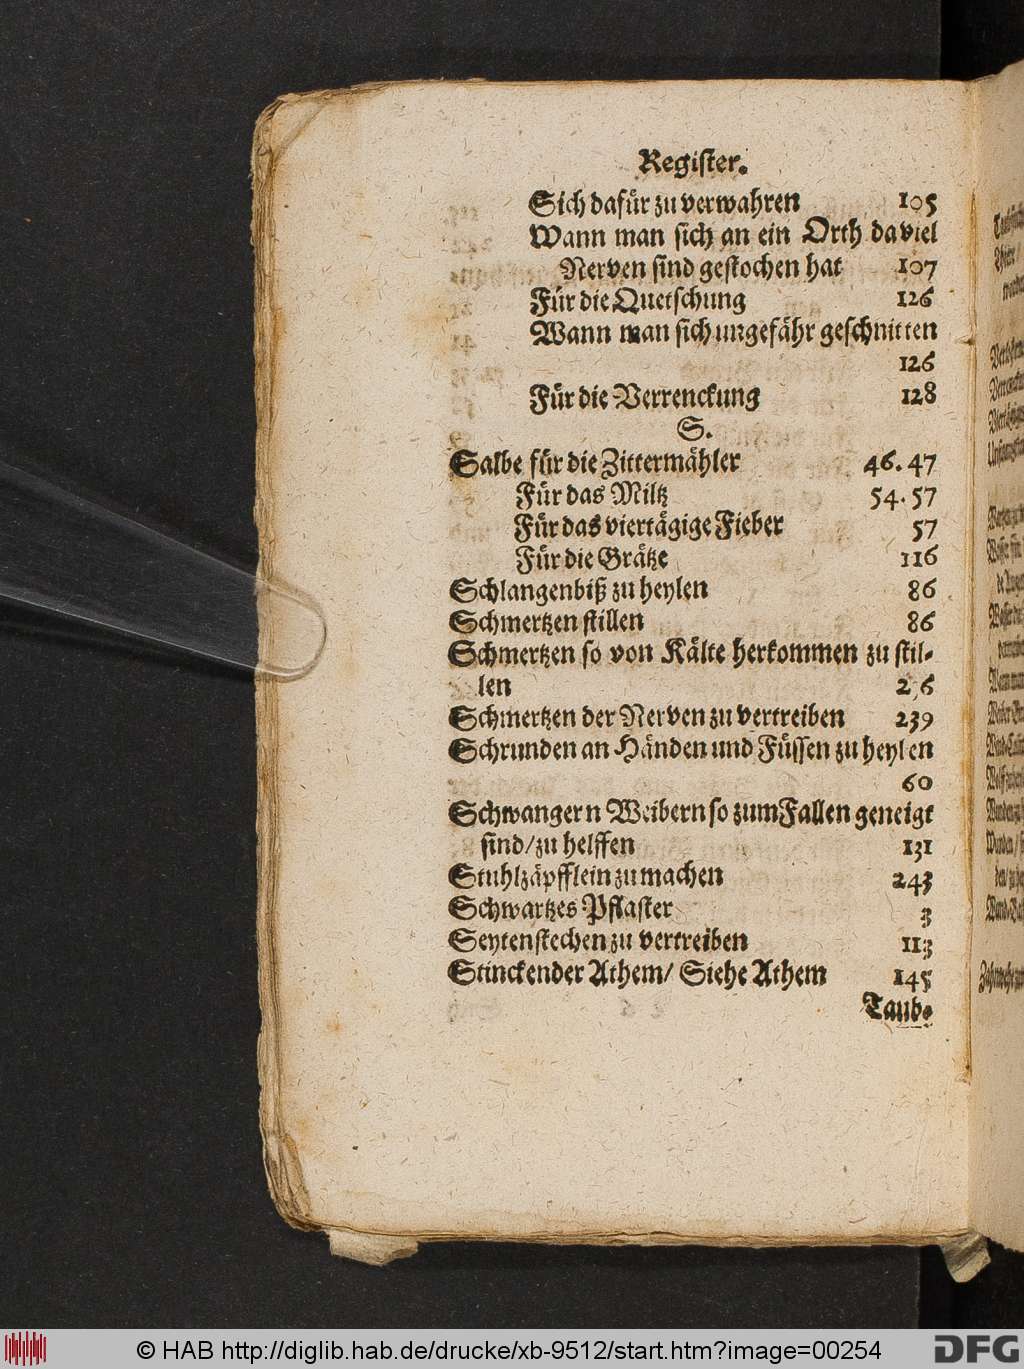 Register.
Sich dafür zu verwahren 105
Wann man sich an ein Orth da viel
Nerven sind gestochen hat 107
Für die Quetschung 126
Wann man sich ungefähr geschnitten
126
Für die Verrenckung 128
S.
Salbe für die Zittermähler 46. 47
Für das Miltz 54. 57
Für das viertägige Fieber 57
Für die Grätze 116
Schlangenbiß zu heylen 86
Schmertzen stillen 86
Schmertzen so von Kälte herkommen zu stil-
len 236
Schmertzen der Nerven zu vertreiben 239
Schrunden an Händen und Füssen zu heylen
60
Schwangern Weibern so zum Fallen geneigt
sind/ zu helffen 131
Stuhlzäpfflein zu machen 243
Schwartzes Pflaster 3
Seytenstechen zu vertreiben 113
Stinckender Athem/ Siehe Athem 145
Taub-
© HAB http://diglib.hab.de/drucke/xb-9512/start.htm?image=00254
DFG